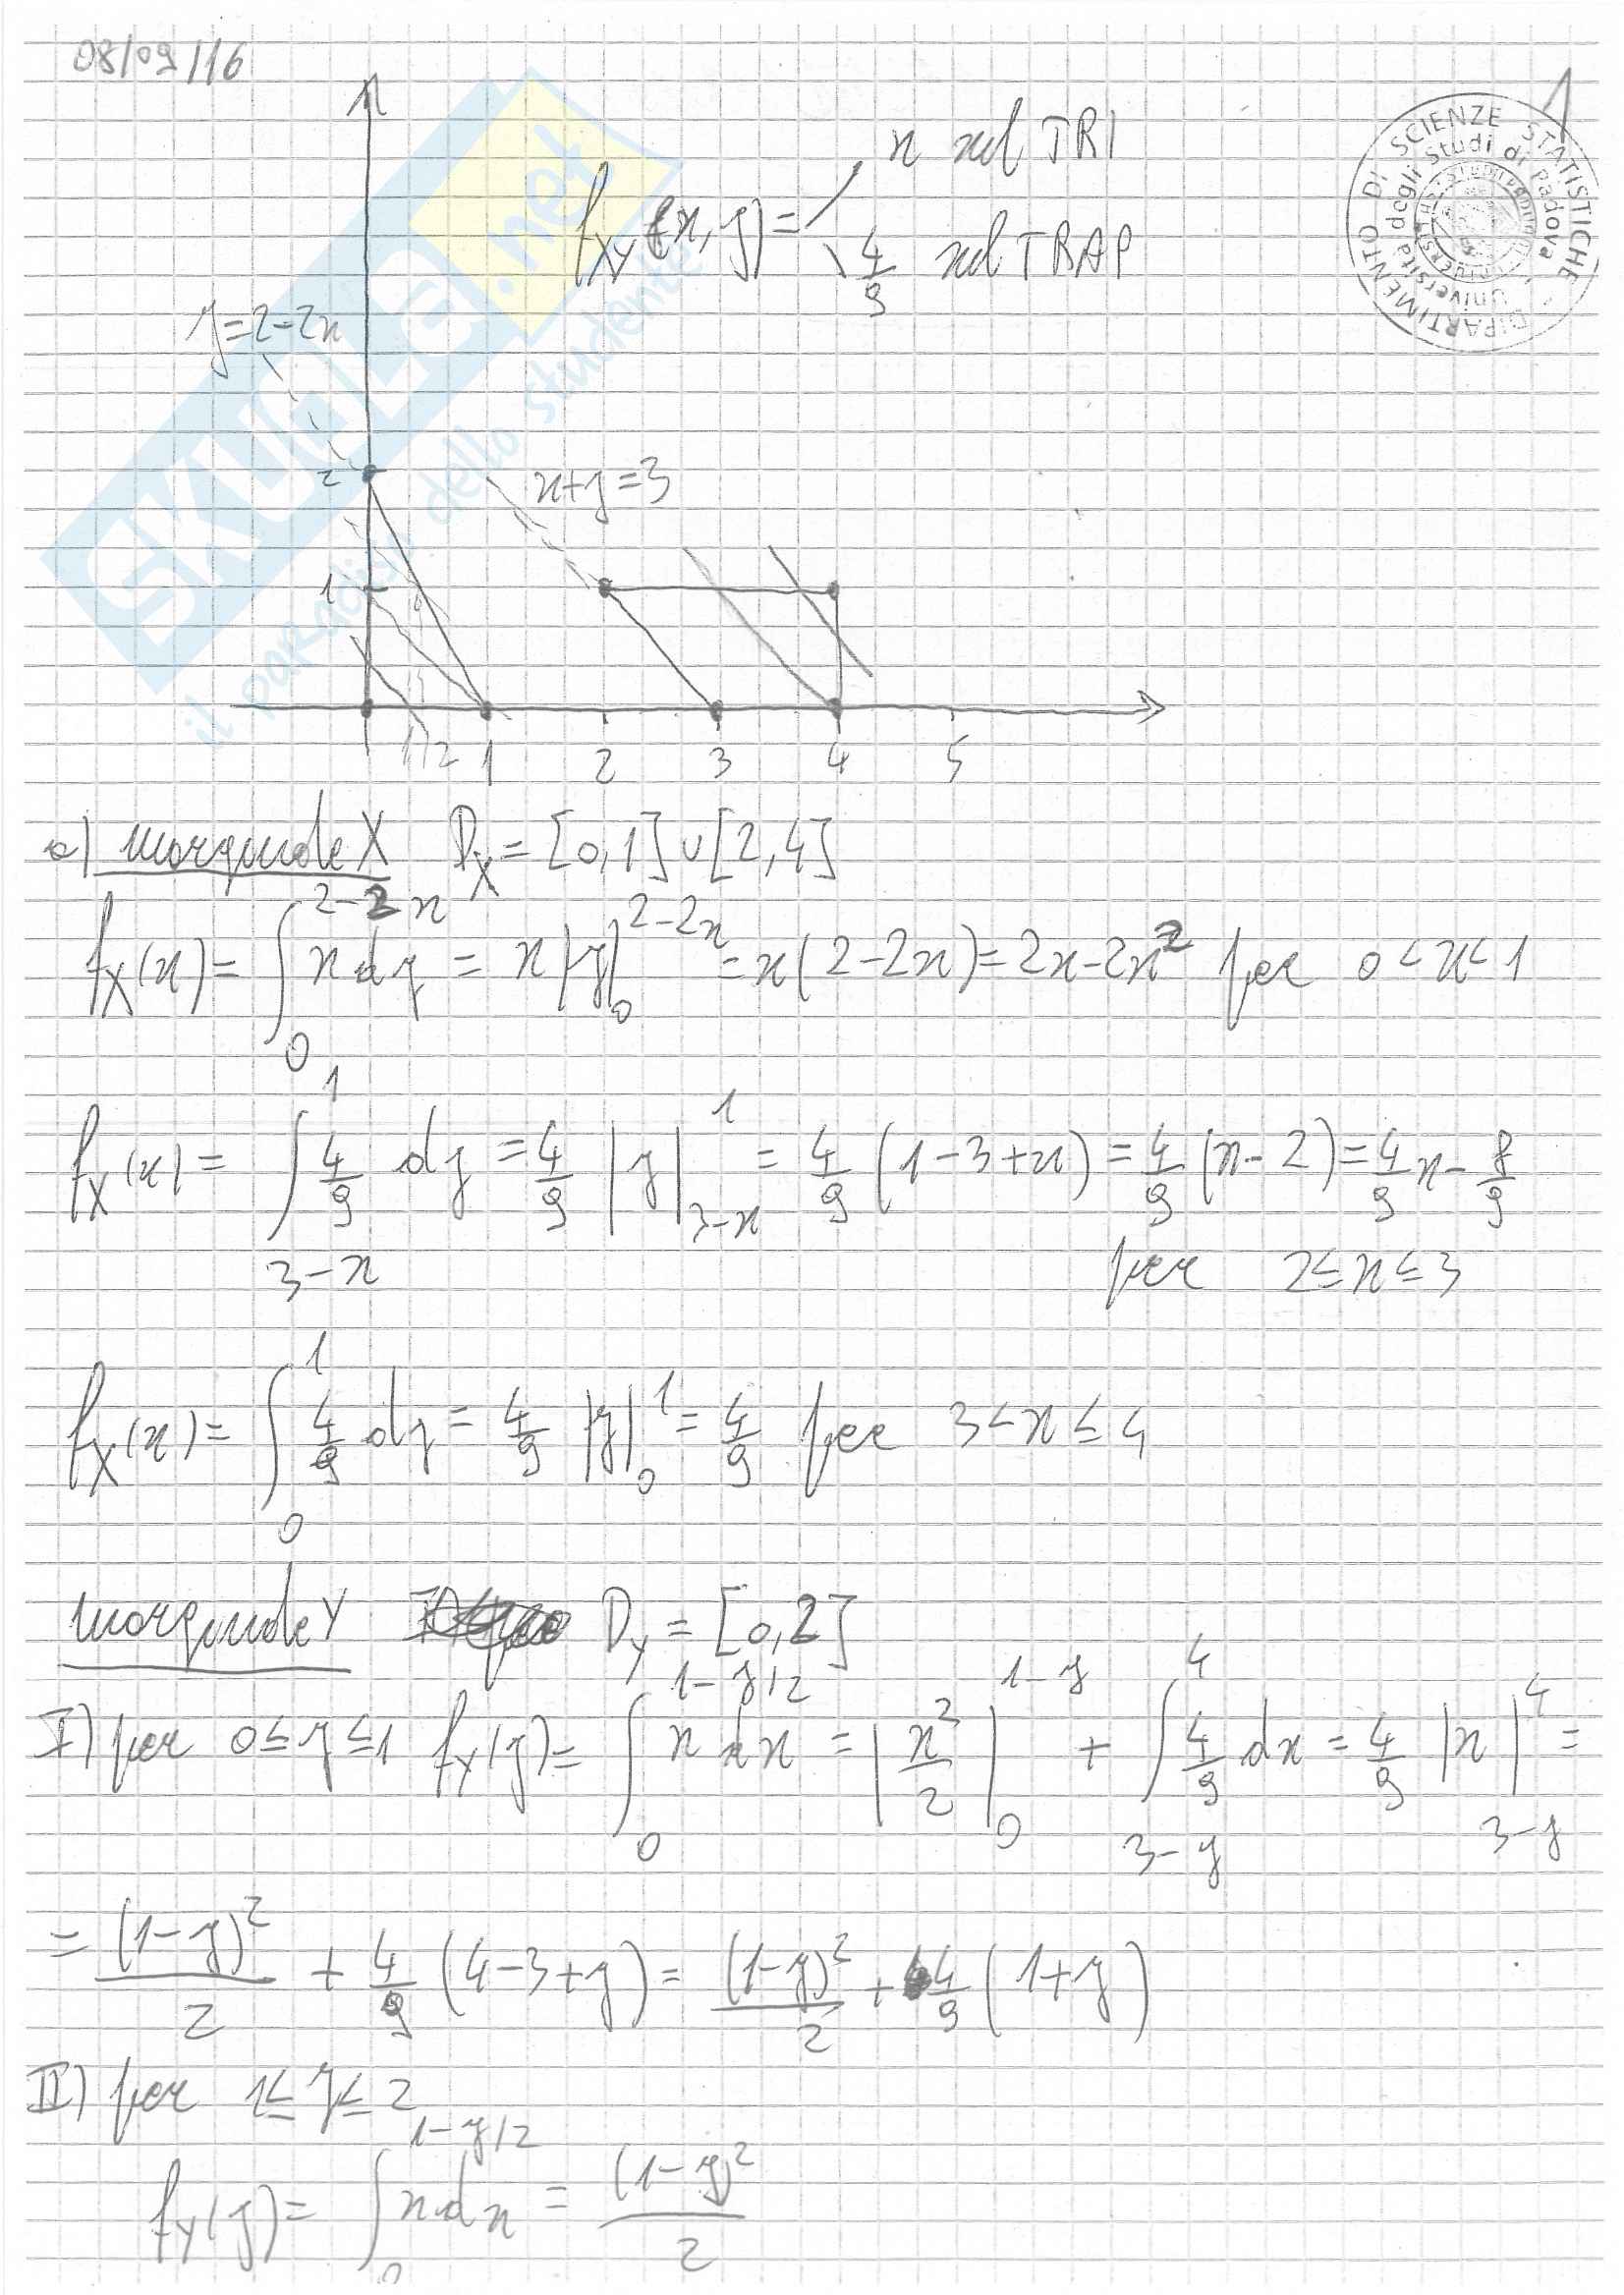 08/09/16
1
DIPARTIMENTO DI SCIENZE STATISTICHE
Università degli Studi di Padova
SKUOLA.net
il paradiso dello studente
f_XY(x,y) = x nel TRI
4/9 nel TRAP
y=2-2x
2
x+y=3
1
1/2 1 2 3 4 5
a) marginale X D_X = [0,1] ∪ [2,4]
f_X(x) = ∫_0^{2-2x} x dy = x |y|_0^{2-2x} = x(2-2x) = 2x-2x² per 0<x<1
f_X(x) = ∫_{3-x}^1 4/9 dy = 4/9 |y|_{3-x}^1 = 4/9 (1-3+x) = 4/9 (x-2) = 4/9 x - 8/9
per 2≤x≤3
f_X(x) = ∫_0^1 4/9 dy = 4/9 |y|_0^1 = 4/9 per 3<x≤4
marginale Y D_Y = [0,2]
I) per 0≤y≤1 f_Y(y) = ∫_0^{1-y/2} x dx = |x²/2|_0^{1-y} + ∫_{3-y}^4 4/9 dx = 4/9 |x|_{3-y}^4 =
= (1-y)²/2 + 4/9 (4-3+y) = (1-y)²/2 + 4/9 (1+y)
II) per 1≤y≤2
f_Y(y) = ∫_0^{1-y/2} x dx = (1-y)²/2